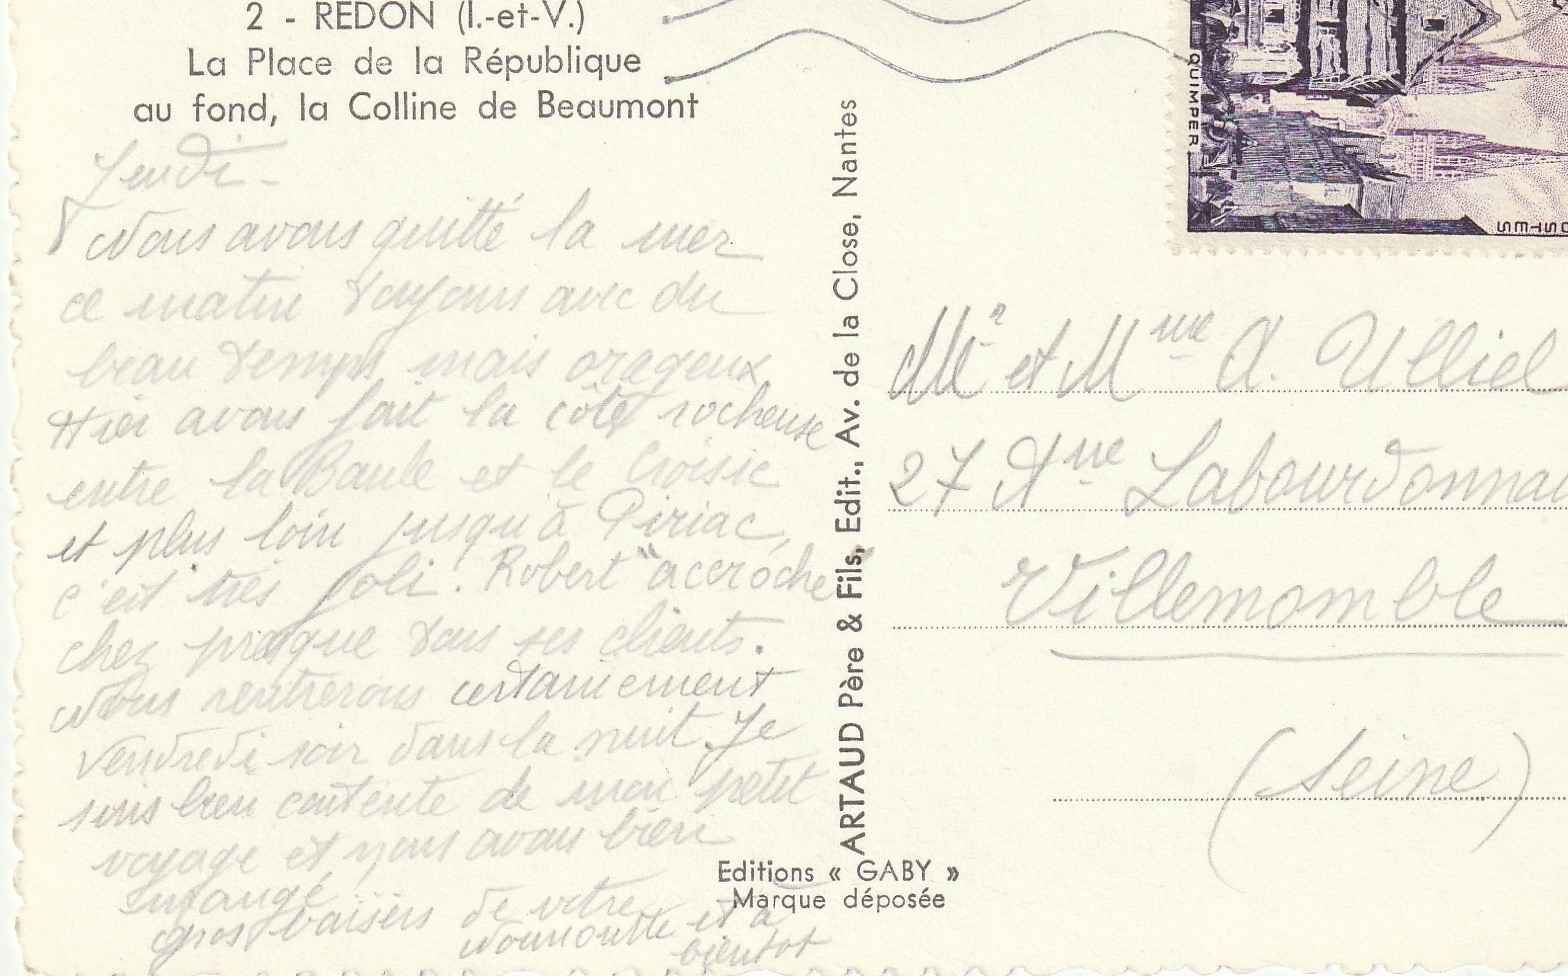 2 - REDON (I.-et-V.)
La Place de la République
au fond, la Colline de Beaumont
Jeudi -
Nous avons quitté la mer
ce matin toujours avec du
beau temps mais orageux
Hier avons fait la côte rocheuse
entre la Baule et le Croisic
et plus loin jusqu'à Piriac,
c'est très joli. Robert "accroche"
chez presque tous ses clients.
Nous rentrerons certainement
vendredi soir dans la nuit. Je
suis bien contente de mon petit
voyage et nous avons bien
mangé
gros baisers de votre
et à
bientot
ARTAUD Père & Fils, Edit., Av. de la Close, Nantes
Editions « GABY »
Marque déposée
QUIMPER
POSTES
Mr et Mme A. Ulliel
27 Ave Labourdonnai
Villemomble
(Seine)